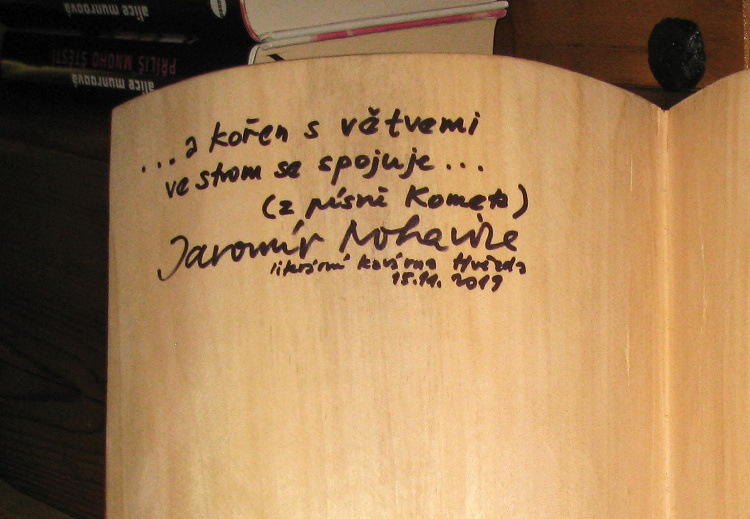 alice munroová
PŘÍLIŠ MNOHO ŠTĚSTÍ
alice munroová
...a kořen s větvemi
ve strom se spojuje...
(z písně Kometa)
Jaromír Nohavica
literární kavárna Hvězda
15.11. 2019